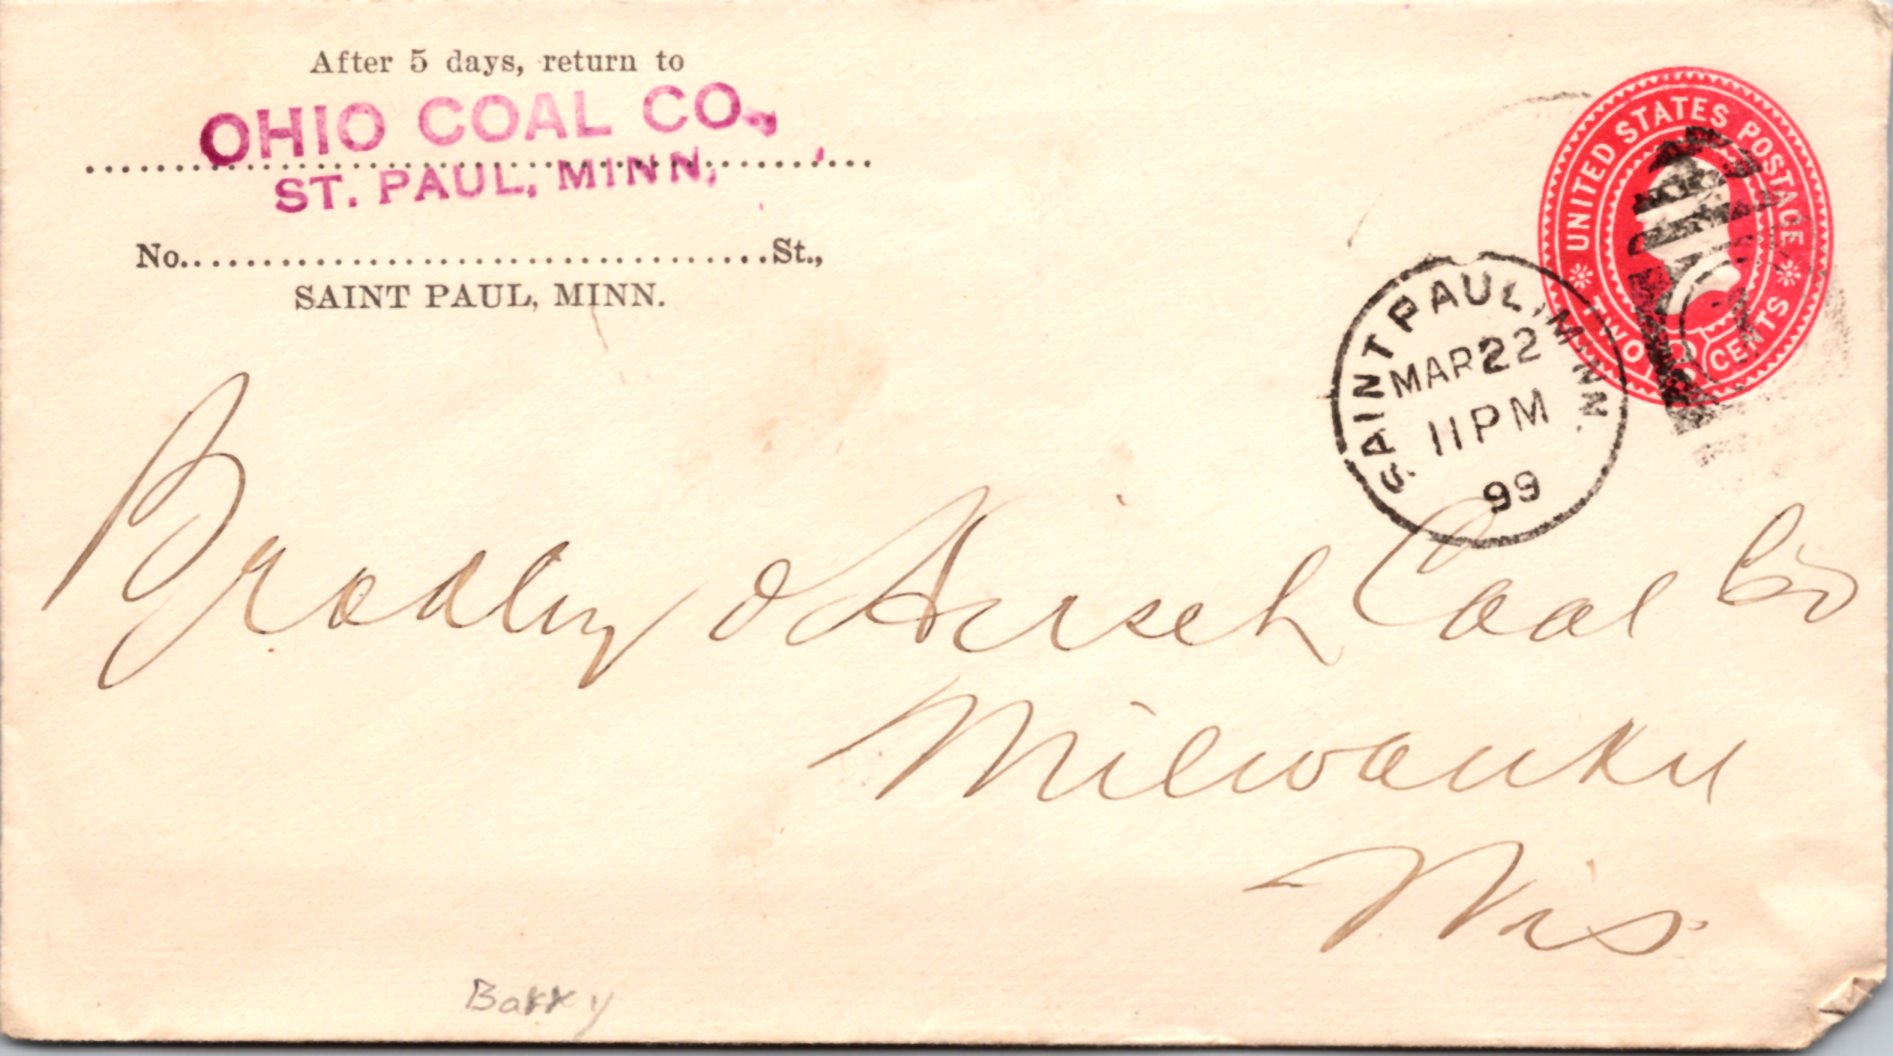 After 5 days, return to
OHIO COAL CO.,
ST. PAUL, MINN,
No. St.,
SAINT PAUL, MINN.
UNITED STATES POSTAGE
TWO CENTS
SAINT PAUL, MINN.
MAR 22
11 PM
99
Bradley & Hirsch Coal Co
Milwaukee
Wis.